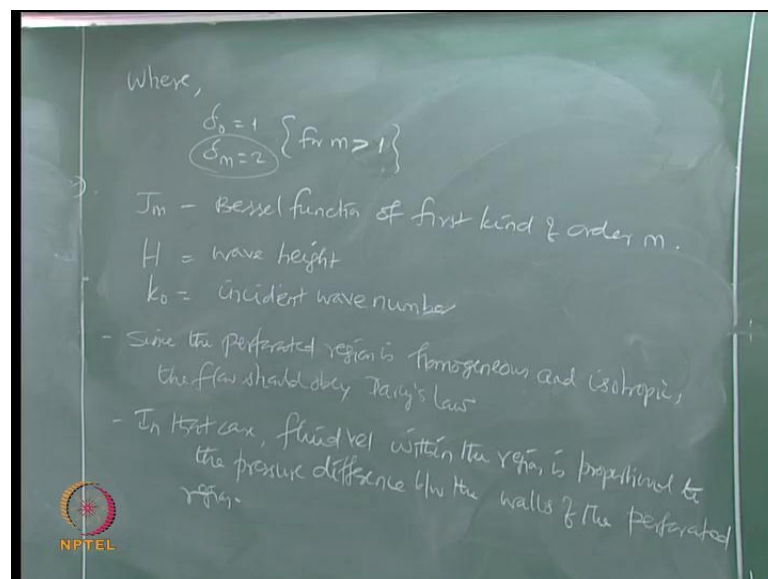 Where,
δ₀ = 1
δm = 2 { for m > 1 }
Jm - Bessel function of first kind & order m.
H = wave height
k₀ = incident wave number
- Since the perforated region is homogeneous and isotropic,
the flow should obey Darcy's law
- In that case, fluid vel within the region is proportional to
the pressure difference b/w the walls of the perforated
region.
NPTEL